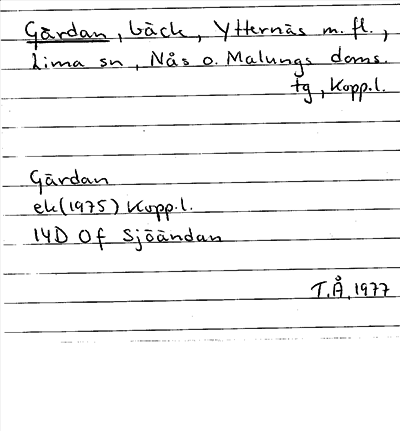 Gärdan, bäck, Ytternäs m. fl.,
Lima sn, Nås o. Malungs doms.
tg, Kopp.l.
Gärdan
ek (1975) Kopp.l.
14D 0f Sjöändan
T.Å. 1977